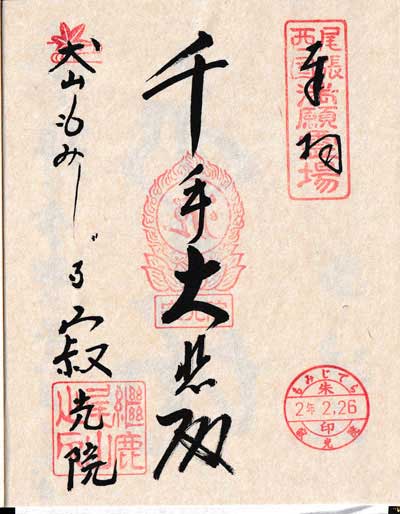 奉拝
尾張
西国
満願霊場
千手大悲殿
犬山もみじでら
寂光院
継鹿
尾山
もみじでら
朱
2年 2.26
印
寂光院